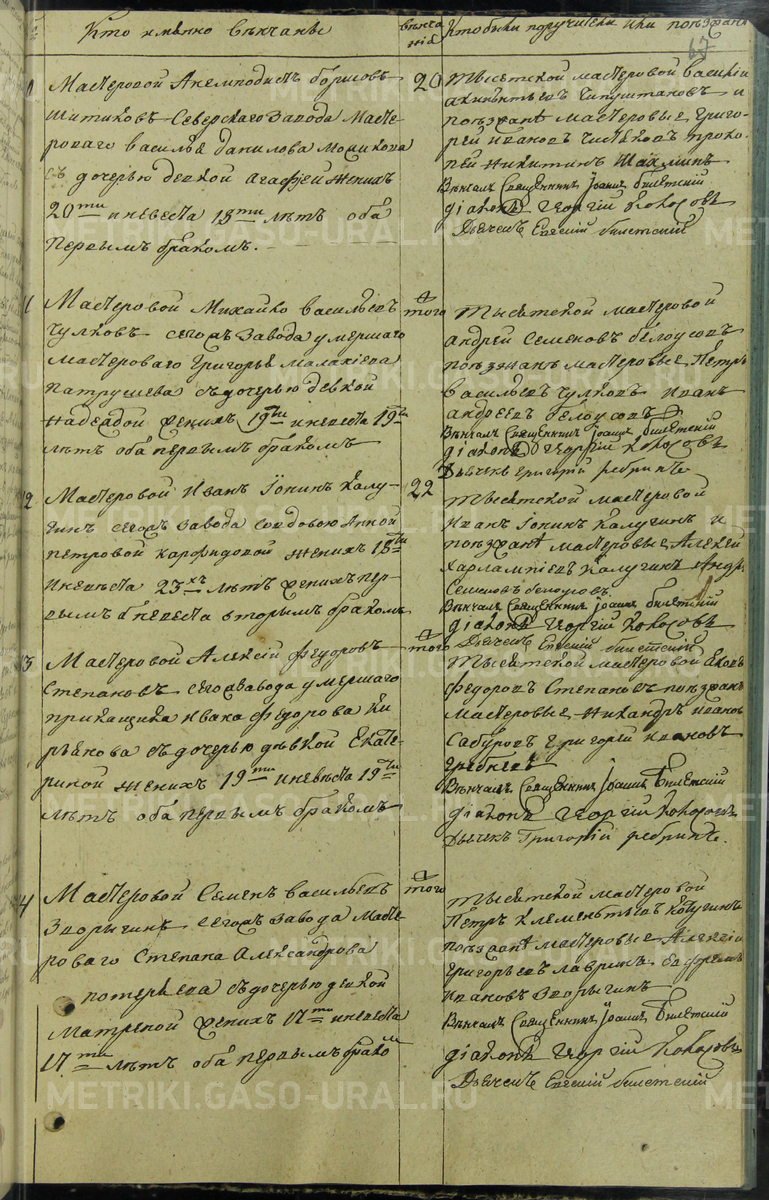 Кто имѣнно вѣнчаны
вѣнча
нія
Кто были поручители или поѣзжаня
67
Мастеровой Анемподистъ борисовъ
Шитиковъ Северскаго Завода Масте-
роваго василья данилова Мошикова
съ дочерью девкой агафьей жениху
20ти иневеста 18ти лѣтъ оба
первымъ бракомъ.
20
Тысяцкой мастеровой василий
поѣзжанѣ мастеровые Григо-
рей ивановъ проко-
пей никитинъ
Вѣнчалъ Священникъ Іоаннъ билетский
діаконъ Георгій Кокосовъ
Дьячекъ Евгений билетский
Мастеровой Михайло васильевъ
Чулковъ сегожъ Завода умершаго
мастероваго Григорья малахиева
патрушева съдочерью девкой
надеждой жениху 19ти иневеста 19ти
лѣтъ оба первымъ бракомъ
того
Тысяцкой мастеровой
андрей Семеновъ белоусовъ
поѣзжанѣ мастеровые Петръ
васильевъ Чулковъ иванъ
андреевъ белоусовъ
Вѣнчалъ Священникъ Іоаннъ билетский
діаконъ Георгій Кокосовъ
Дьячекъ григорий ребринъ
Мастеровой Иванъ Іонинъ Калу-
гинъ сегожъ завода совдовою Анной
петровой жениху 18ти
иневеста 23хъ лѣтъ женихъ пер-
вымъ аневеста вторымъ бракомъ
22
Тысяцкой мастеровой
иванъ Іонинъ Калугинъ и
поѣзжанѣ мастеровые Алексей
харлампиевъ Калугинъ Андрей
Семеновъ белоусовъ.
Вѣнчалъ Священникъ Іоаннъ билетский
діаконъ Георгій Кокосовъ
Дьячекъ Евгений билетский
Мастеровой Алексий Федоровъ
Степановъ сегожъ Завода умершаго
прикащика ивана Федорова Ки
рьякова съдочерью дѣвкой Екате-
риной жениху 19ти иневеста 19ти
лѣтъ оба первымъ бракомъ
того
Тысяцкой мастеровой Яковъ
Федоровъ Степановъ поѣзжанѣ
мастеровые никандръ ивановъ
Сабуровъ григорей ивановъ
Вѣнчалъ Священникъ Іоаннъ Билетский
діаконъ Георгій Кокосовъ
Дьячекъ Григорій ребринъ.
4
Мастеровой Семенъ васильевъ
Зворыгинъ сегожъ завода Масте
роваго Степана Александрова
потеряева съдочерью девкой
Матреной жениху 17ти иневеста
17ти лѣтъ оба первымъ бракомъ
того
Тысяцкой мастеровой
Петръ Клементьевъ
поѣзжанѣ мастеровые Алексей
Григорьевъ лавринъ. Ефремъ
ивановъ Зворыгинъ
Вѣнчалъ Священникъ Іоаннъ Билетский
діаконъ Георгій Кокосовъ
Дьячекъ Евгений билетский
METRIKI.GASO-URAL.RU